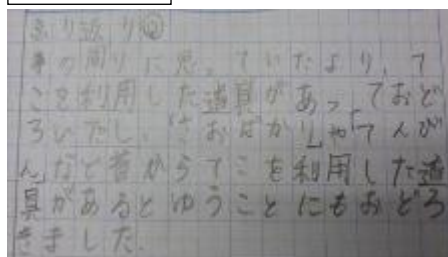 ふり返り②
身の周りに思っていたより、て
こを利用した道具があっておど
ろいたし、「さおばかり」や「てんび
ん」など昔からてこを利用した道
具があるとゆうことにもおどろ
きました。